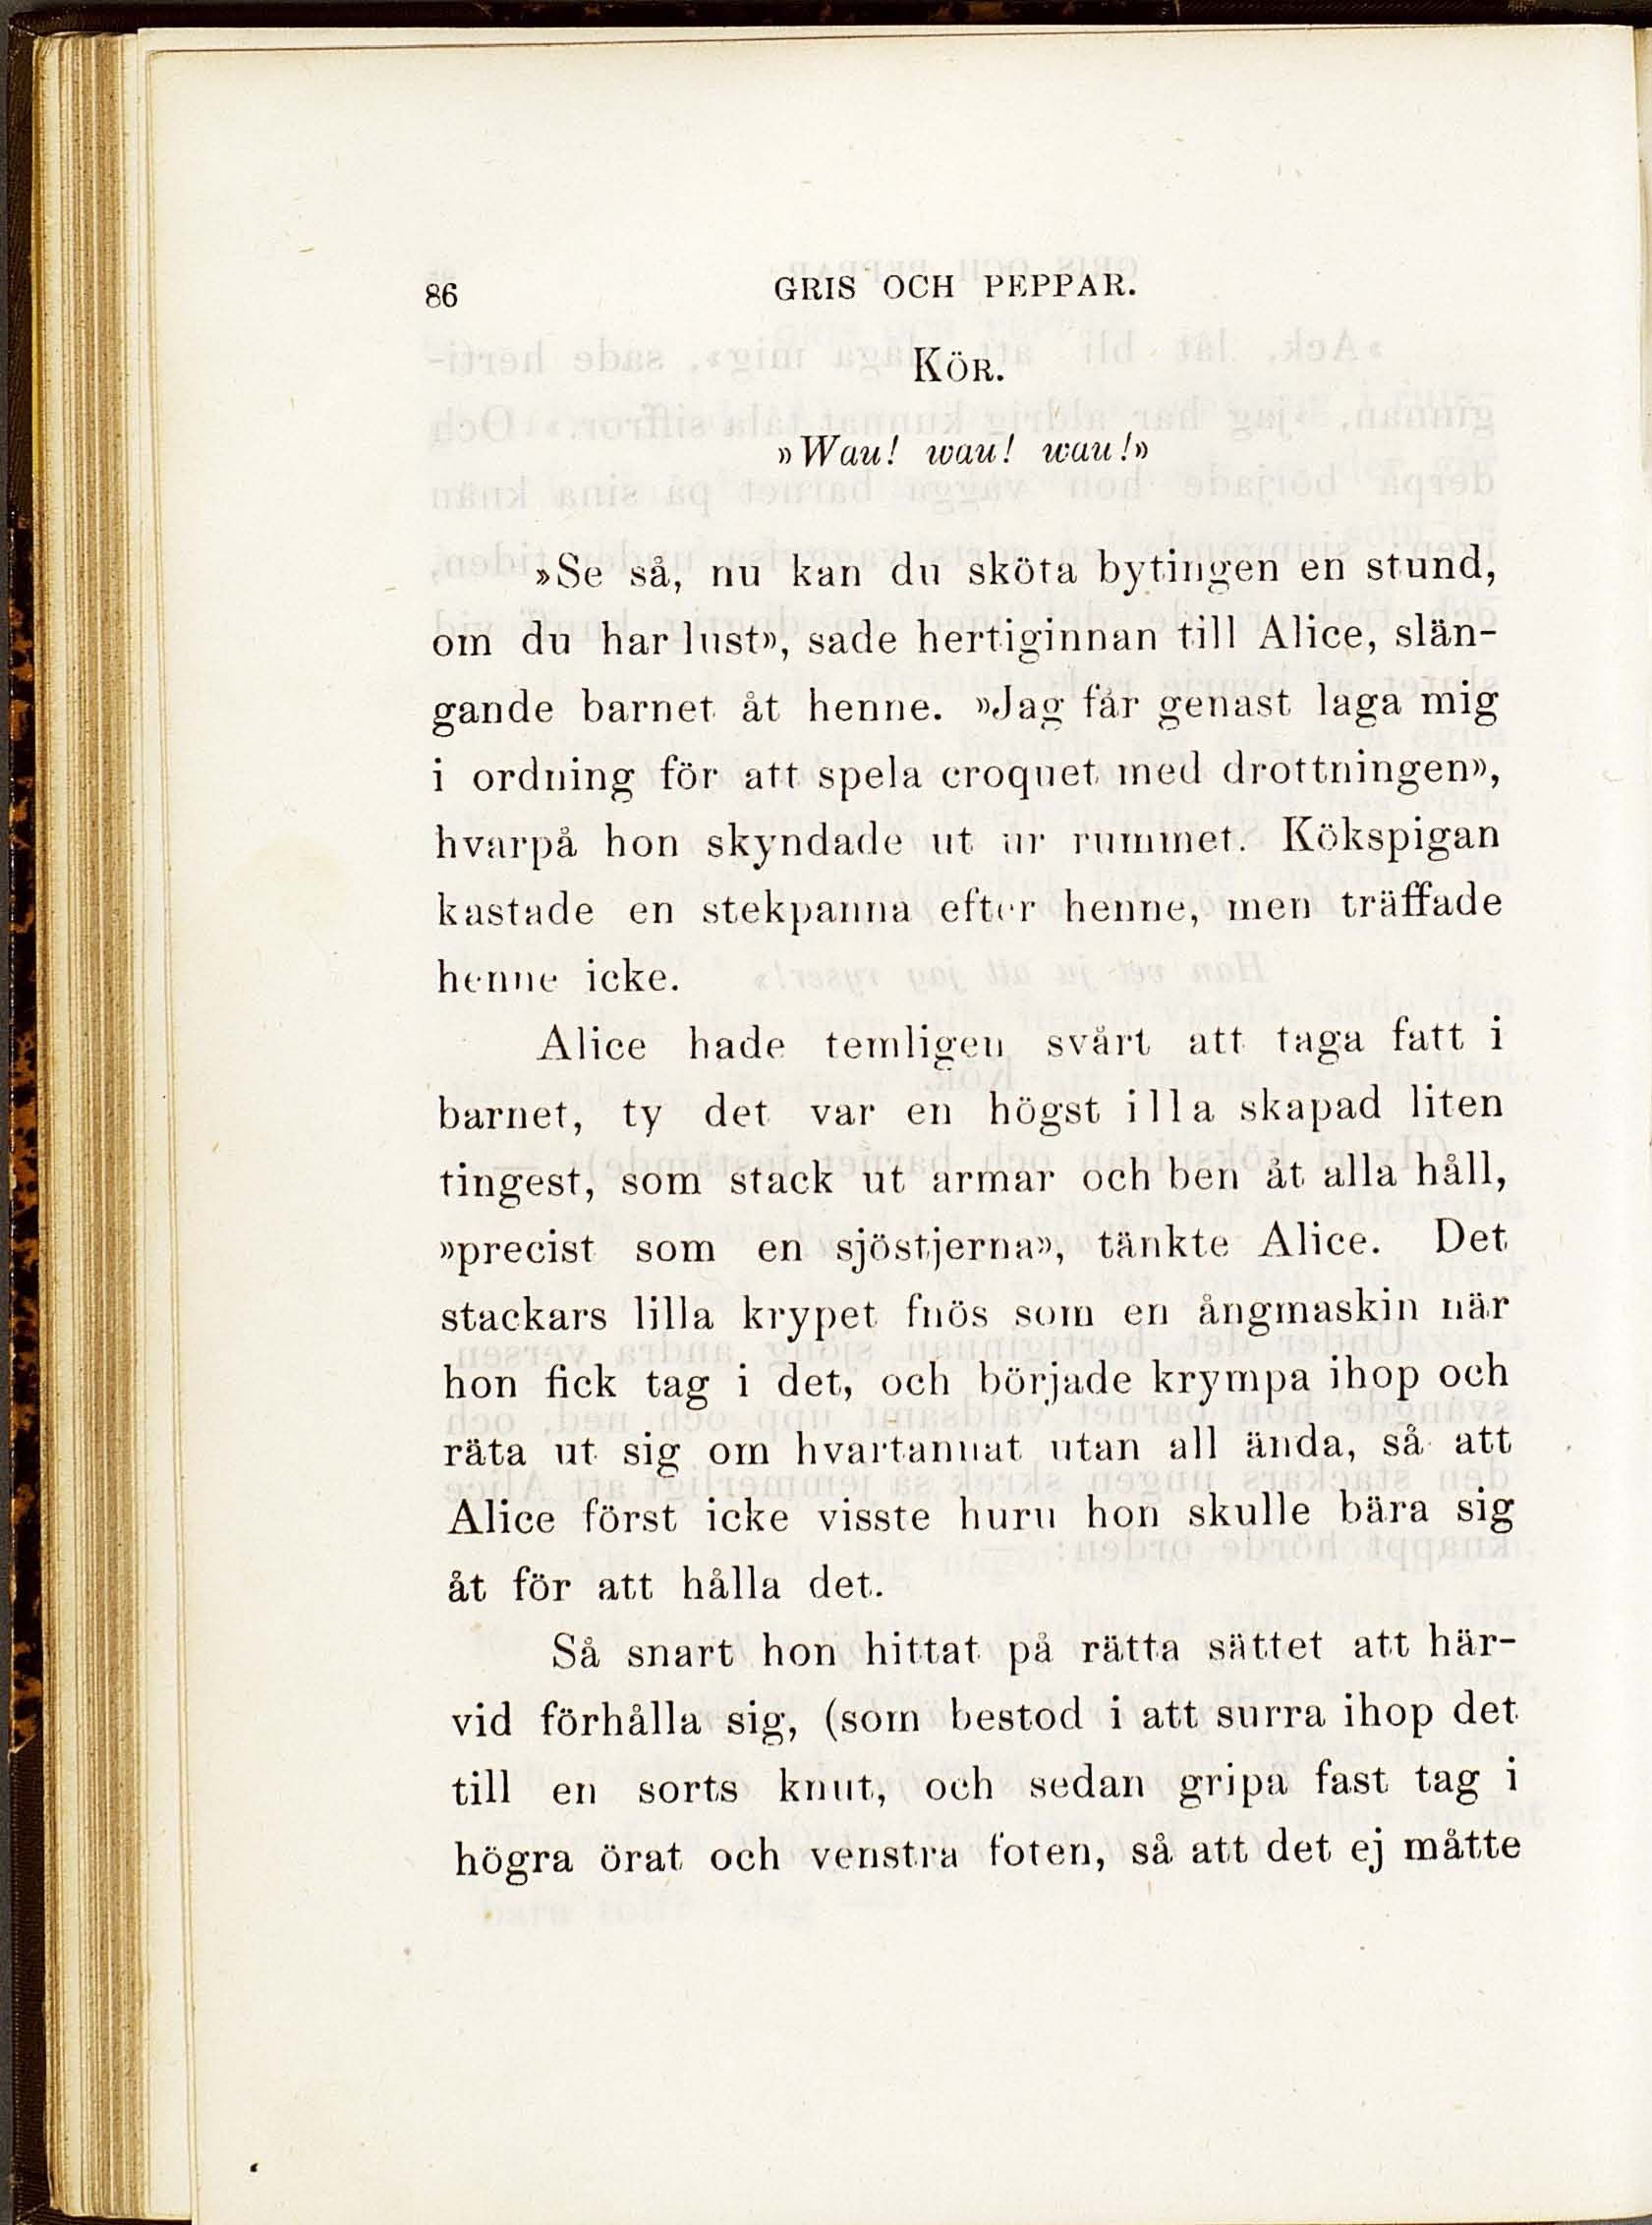 86 GRIS OCH PEPPAR.
KÖR.
»Wau! wau! wau!»
»Se så, nu kan du sköta bytingen en stund,
om du har lust», sade hertiginnan till Alice, slän-
gande barnet åt henne. »Jag får genast laga mig
i ordning för att spela croquet med drottningen»,
hvarpå hon skyndade ut ur rummet. Kökspigan
kastade en stekpanna efter henne, men träffade
henne icke.
Alice hade temligen svårt att taga fatt i
barnet, ty det var en högst illa skapad liten
tingest, som stack ut armar och ben åt alla håll,
»precist som en sjöstjerna», tänkte Alice. Det
stackars lilla krypet fnös som en ångmaskin när
hon fick tag i det, och började krympa ihop och
räta ut sig om hvartannat utan all ända, så att
Alice först icke visste huru hon skulle bära sig
åt för att hålla det.
Så snart hon hittat på rätta sättet att här-
vid förhålla sig, (som bestod i att surra ihop det
till en sorts knut, och sedan gripa fast tag i
högra örat och venstra foten, så att det ej måtte